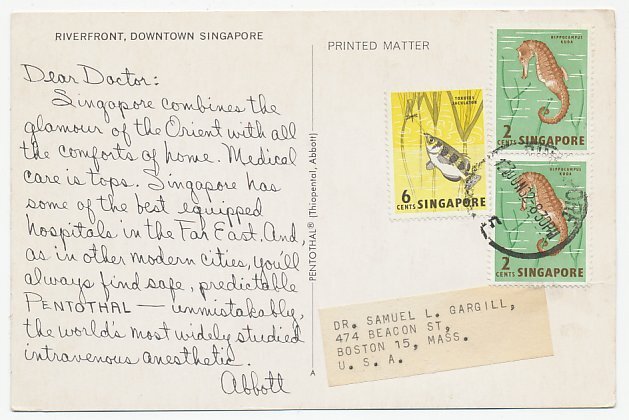 RIVERFRONT, DOWNTOWN SINGAPORE
Dear Doctor:
Singapore combines the
glamour of the Orient with all
the comforts of home. Medical
care is tops. Singapore has
some of the best equipped
hospitals in the Far East. And,
as in other modern cities, you'll
always find safe, predictable
PENTOTHAL — unmistakably,
the world's most widely studied
intravenous anesthetic.
Abbott
PENTOTHAL® (Thiopental, Abbott)
A
PRINTED MATTER
TOXOTES
JACULATOR
6
CENTS SINGAPORE
HIPPOCAMPUS
KUDA
2
CENTS SINGAPORE
HIPPOCAMPUS
KUDA
2
CENTS SINGAPORE
DR. SAMUEL L. GARGILL,
474 BEACON ST,
BOSTON 15, MASS.
U. S. A.